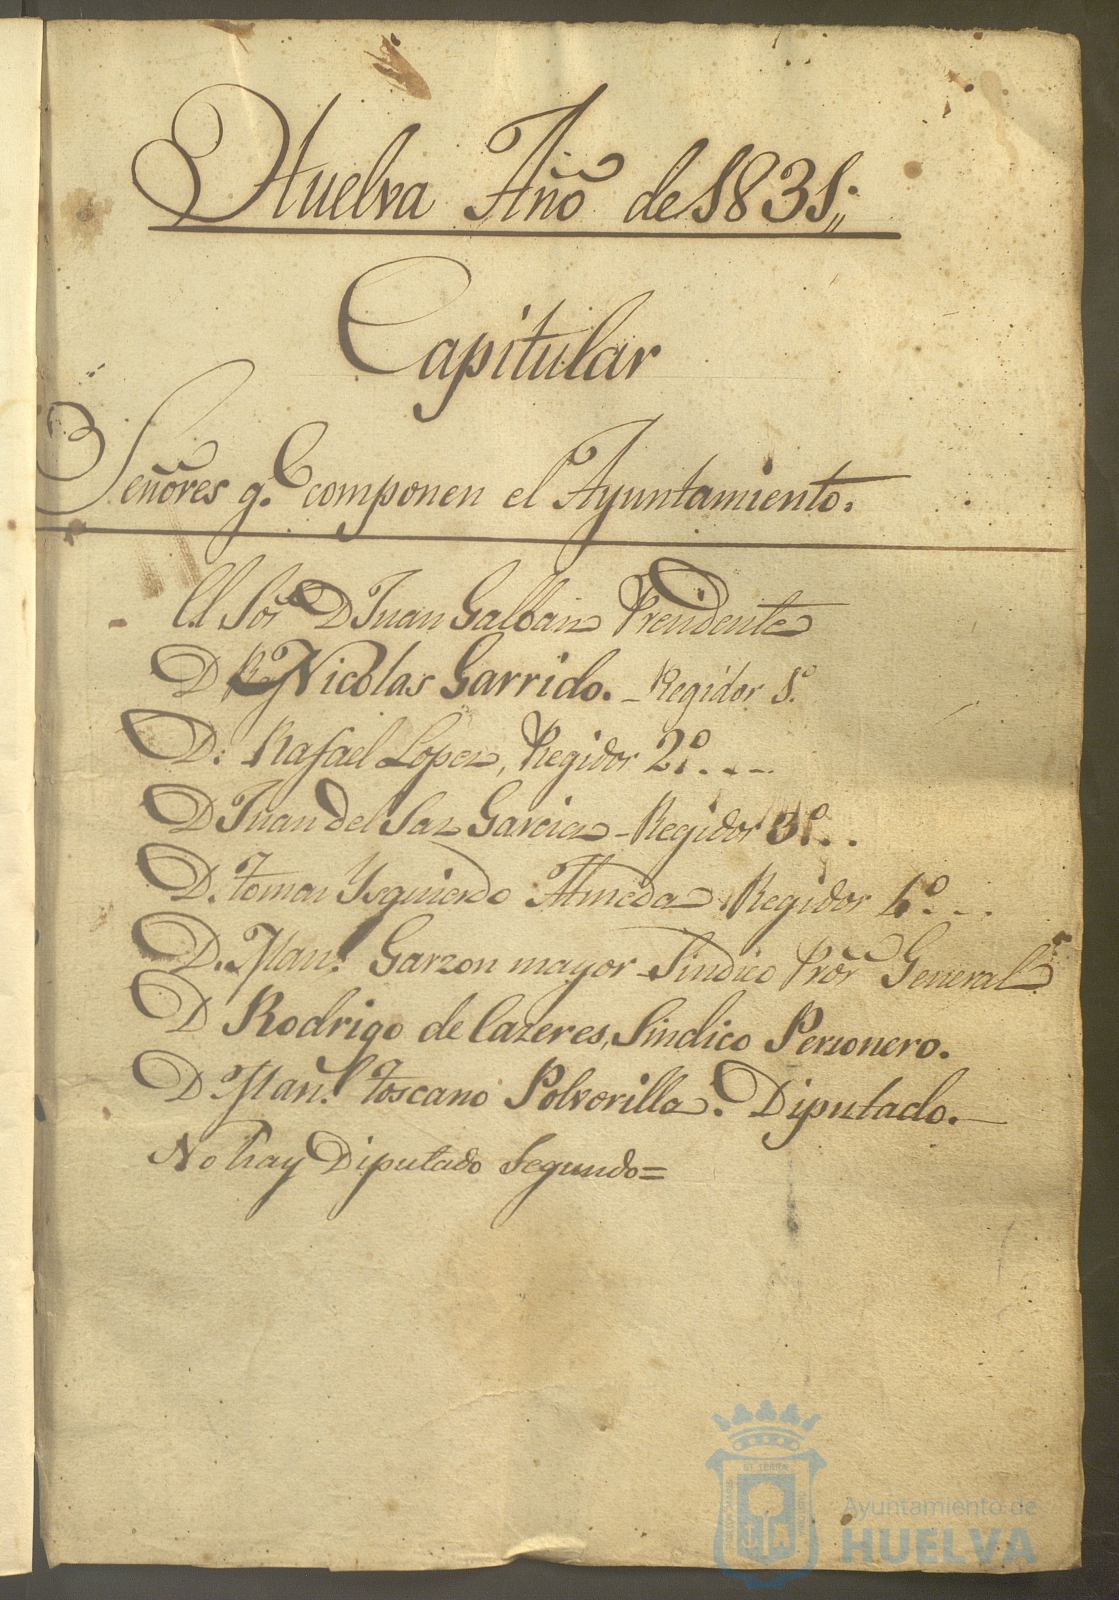 Huelva Año de 1831,,
Capitular
Señores q.e componen el Ayuntamiento.
El Sor D Juan Galban Presidente
D Nicolas Garrido. - Regidor 1.º
D: Rafael Lopez, Regidor 2º....
D Juan del Saz Garcia - Regidor 3º...
D. tomas Ysquierdo Almeda Regidor 4º...
D. Man.l Garzon mayor Sindico Pror General
D Rodrigo de Cazeres, Sindico Personero.
D Man.l toscano Polvorilla. Diputado.
No hay Diputado Segundo=
Ayuntamiento de
HUELVA